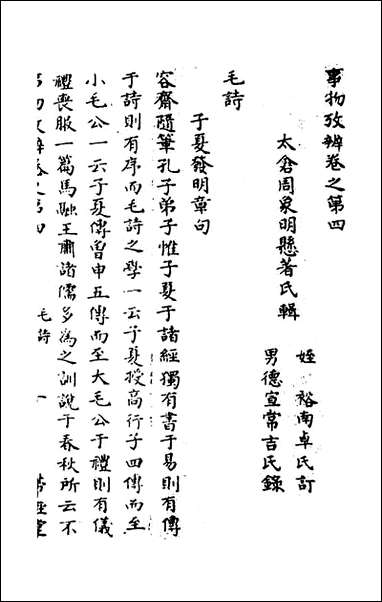 事物攷辨卷之第四
太倉周象明懸著氏輯
姪　裕南卓氏訂
男德宣常吉氏錄
毛詩
子夏發明章句
容齋隨筆孔子弟子惟子夏于諸經獨有書于易則有傳
于詩則有序而毛詩之學一云子夏授高行子四傳而至
小毛公一云子夏傳曾申五傳而至大毛公于禮則有儀
禮喪服一篇馬融王肅諸儒多為之訓說于春秋所云不
事物攷辨卷之第四　毛詩　一